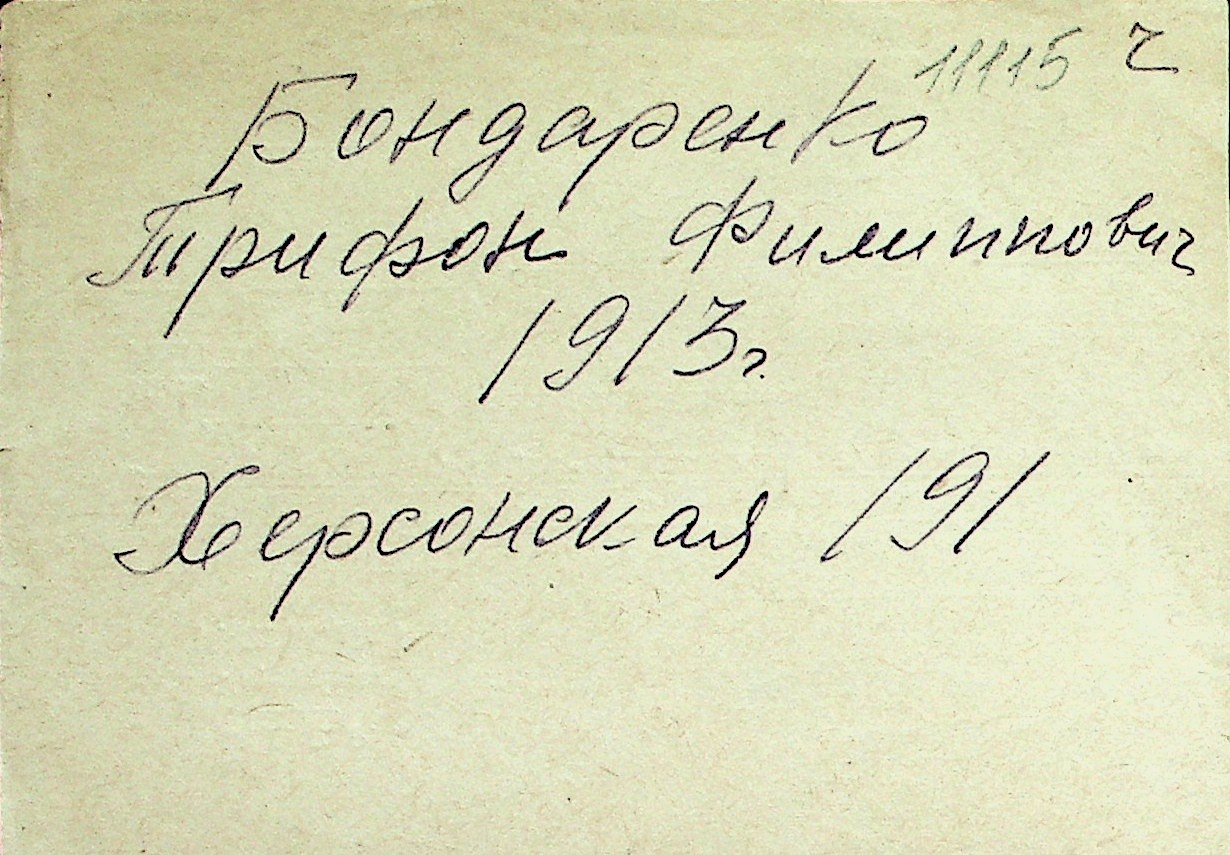 11115 ч
Бондаренко
Трифон Филиппович
1913г.
Херсонская 191